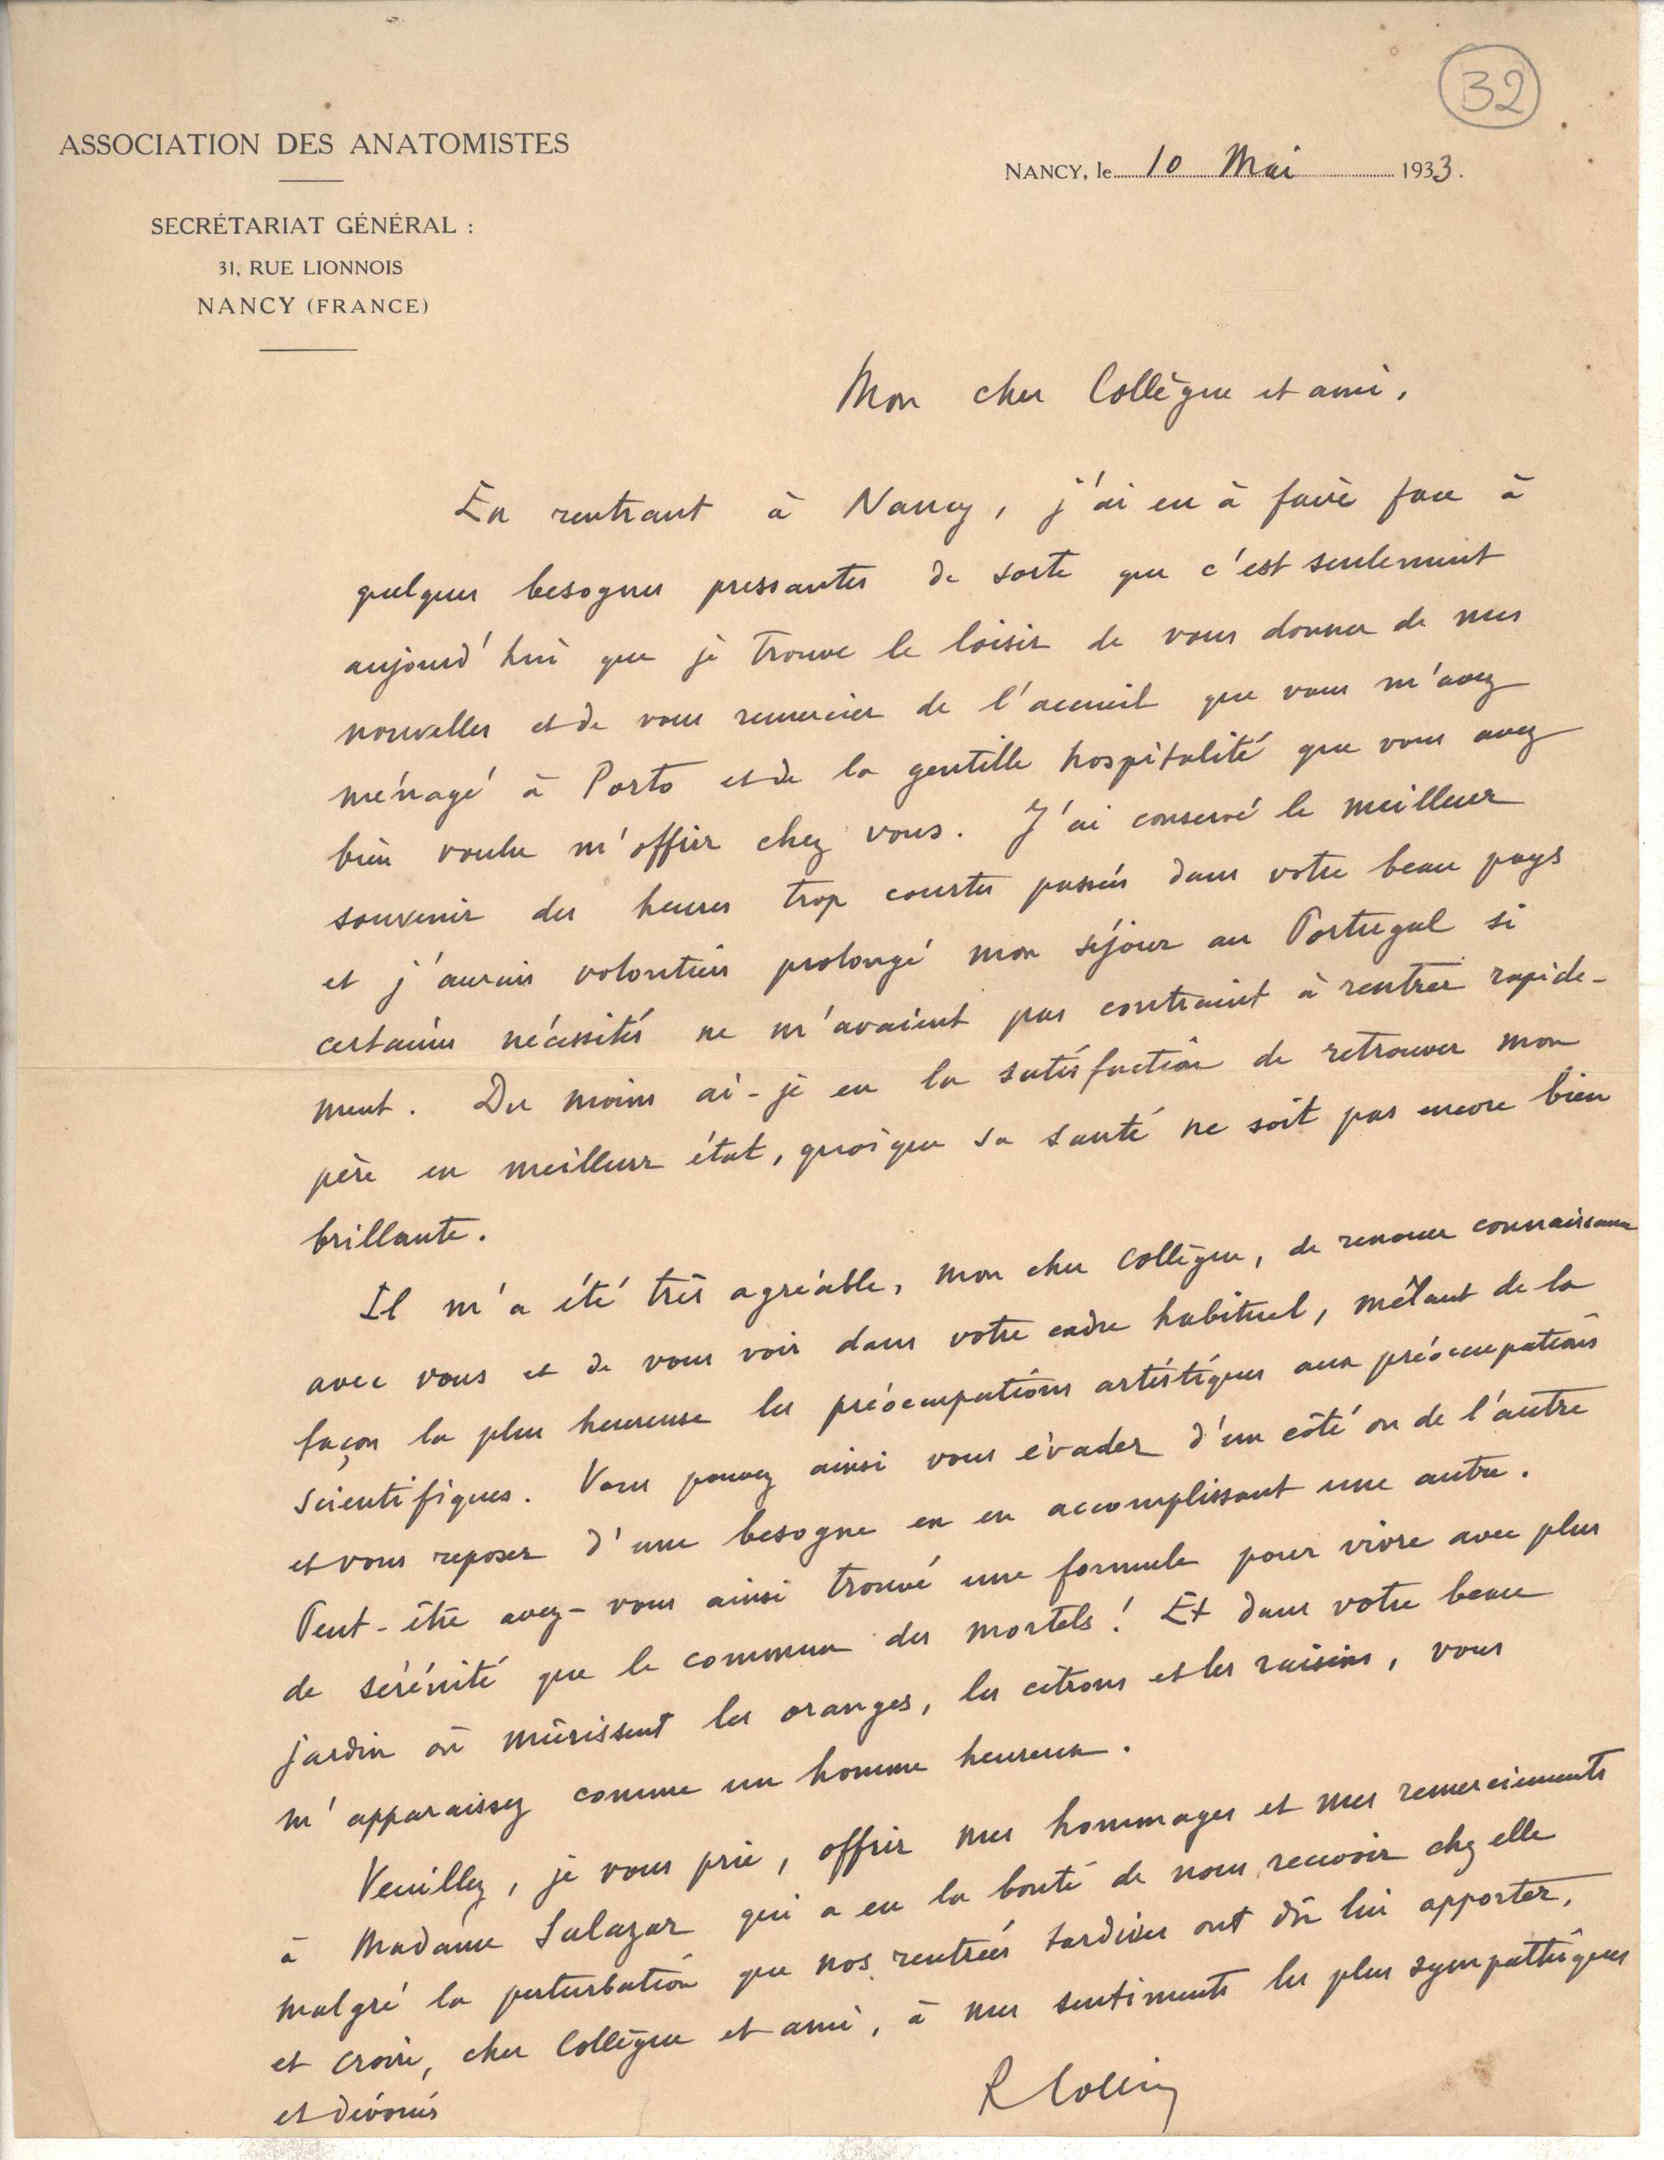 32
ASSOCIATION DES ANATOMISTES
SECRÉTARIAT GÉNÉRAL :
31, RUE LIONNOIS
NANCY (FRANCE)
NANCY, le 10 Mai 1933.
Mon cher Collègue et ami,
En rentrant à Nancy, j'ai eu à faire face à
quelques besognes pressantes de sorte que c'est seulement
aujourd'hui que je trouve le loisir de vous donner de mes
nouvelles et de vous remercier de l'accueil que vous m'avez
ménagé à Porto et de la gentille hospitalité que vous avez
bien voulu m'offrir chez vous. J'ai conservé le meilleur
souvenir des heures trop courtes passées dans votre beau pays
et j'aurais volontiers prolongé mon séjour au Portugal si
certaines nécessités ne m'avaient pas contraint à rentrer rapide-
ment. Du moins ai-je eu la satisfaction de retrouver mon
père en meilleur état, quoique sa santé ne soit pas encore bien
brillante.
Il m'a été très agréable, mon cher Collègue, de renouer connaissance
avec vous et de vous voir dans votre cadre habituel, mêlant de la
façon la plus heureuse les préoccupations artistiques aux préoccupations
scientifiques. Vous pouvez ainsi vous évader d'un côté ou de l'autre
et vous reposer d'une besogne en en accomplissant une autre.
Peut-être avez-vous ainsi trouvé une formule pour vivre avec plus
de sérénité que le commun des mortels! Et dans votre beau
jardin où mûrissent les oranges, les citrons et les raisins, vous
m'apparaissez comme un homme heureux.
Veuillez, je vous prie, offrir mes hommages et mes remerciements
à Madame Salazar qui a eu la bonté de nous recevoir chez elle
malgré la perturbation que nos rentrées tardives ont dû lui apporter,
et croire, cher Collègue et ami, à mes sentiments les plus sympathiques
et dévoués
R Collin